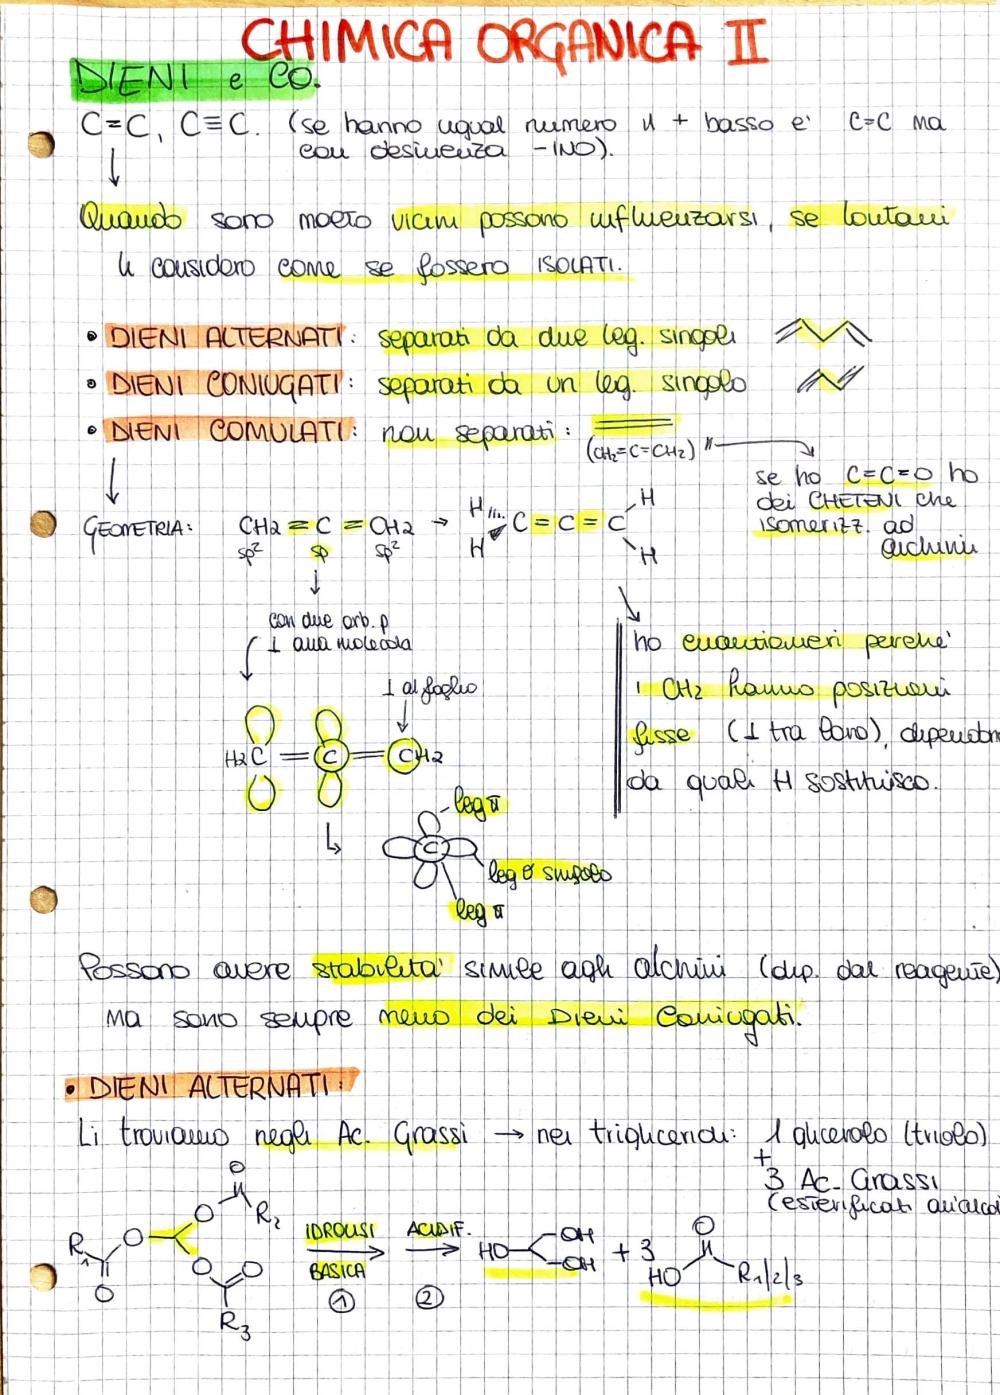 CHIMICA ORGANICA II
DIENI e CO.
C=C, C≡C. (se hanno ugual numero il + basso e' C=C ma
con desinenza -INO).
↓
Quando sono molto vicini possono influenzarsi, se lontani
li considero come se fossero ISOLATI.
• DIENI ALTERNATI: separati da due leg. singoli
• DIENI CONIUGATI: separati da un leg. singolo
• DIENI COMULATI: non separati:
(CH2=C=CH2)
se ho C=C=O ho
dei CHETENI che
isomerizz. ad
alchini
GEOMETRIA: CH2 = C = CH2 → H H C = C = C H H
sp² sp sp²
con due orb. p
⊥ alla molecola
⊥ al foglio
H2C = C = CH2
ho enantiomeri perche'
i CH2 hanno posizioni
fisse (⊥ tra loro), dipendon
da quali H sostituisco.
leg π
C
leg σ singolo
leg π
Possono avere stabilita' simile agli alchini (dip. dal reagente)
ma sono sempre meno dei Dieni Coniugati.
• DIENI ALTERNATI:
Li troviamo negli Ac. Grassi → nei trigliceridi: 1 glicerolo (triolo)
+
3 Ac. Grassi
(esterificati all'alcol
R1 O O O R2 O O O R3
IDROLISI
BASICA
①
ACIDIF.
②
HO OH OH + 3 HO O R1/2/3